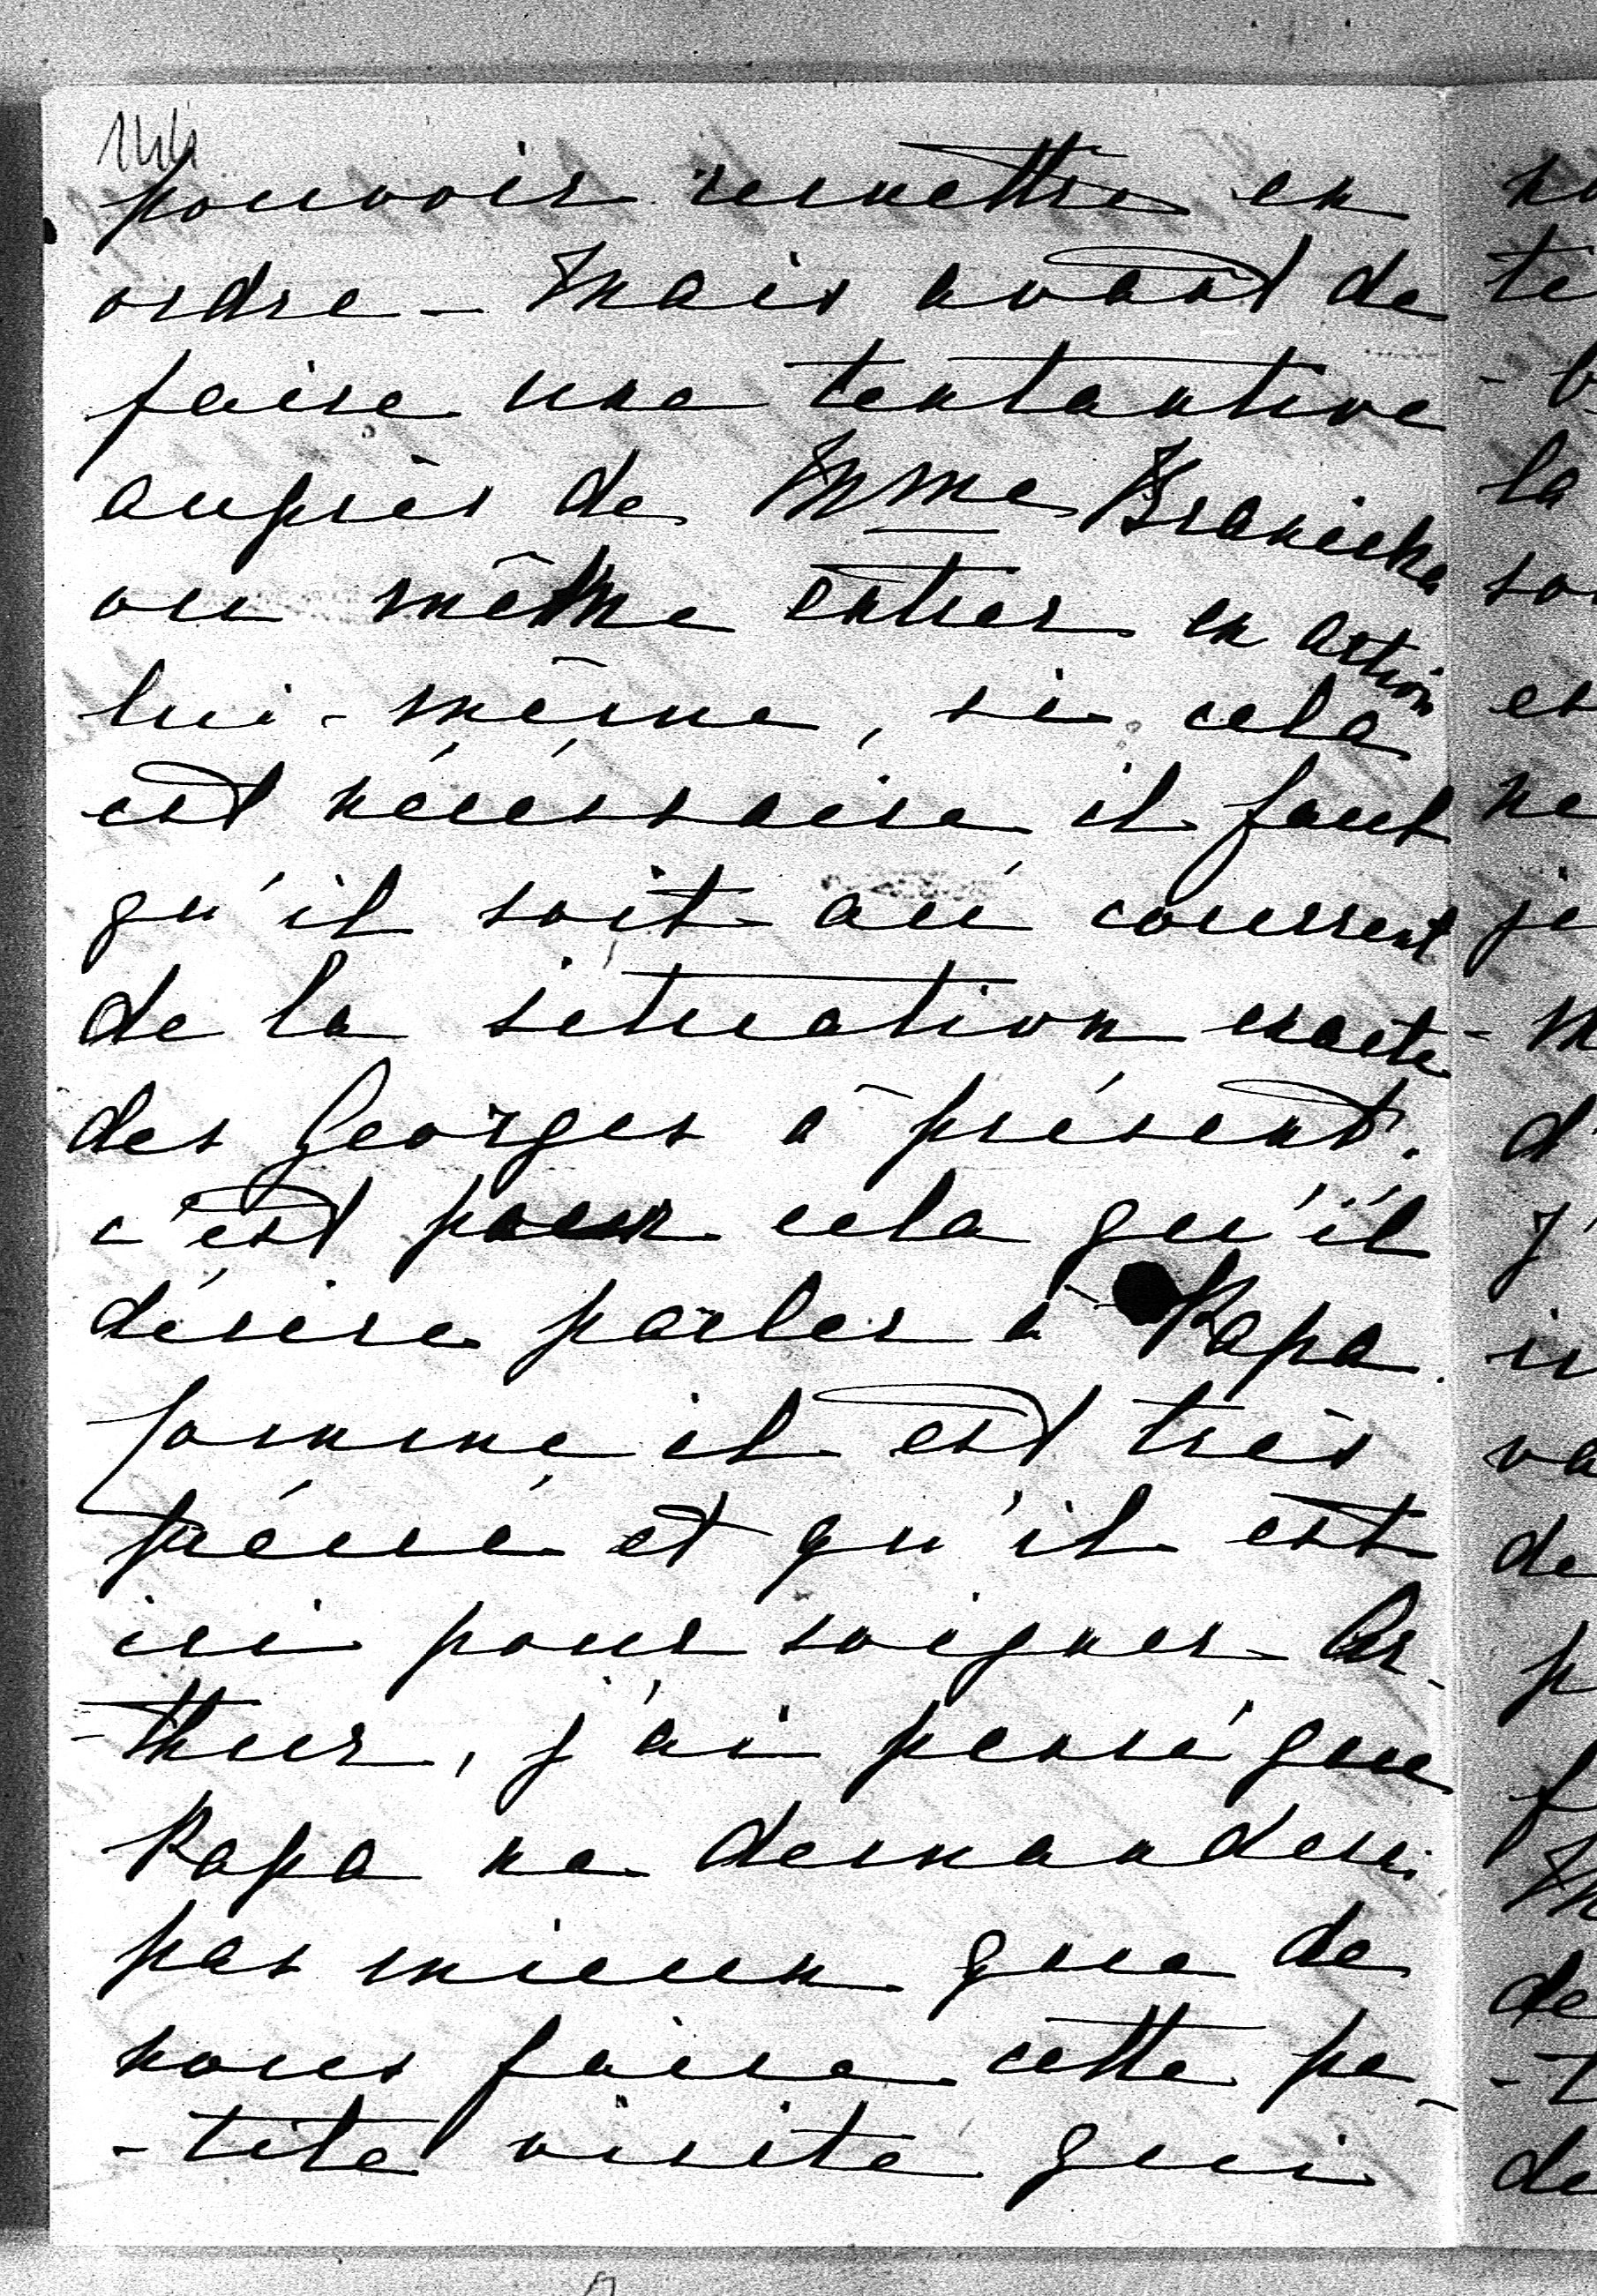 144
pouvoir remettre en
ordre - Mais avant de
faire une tentantive
auprès de Mme Branicka
ou même entrer en action
lui-même, si cela
est nécéssaire il faut
qu'il soit au courrent
de la situation exacte
des Georges à présent.
c'est pour cela qu'il
désire parler à Papa.
Comme il est très
pressé et qu'il est
ici pour soigner Ar-
-thur, j'ai pensé que
Papa ne demandera
pas mieux que de
nous faire cette pe-
-tite visite qui